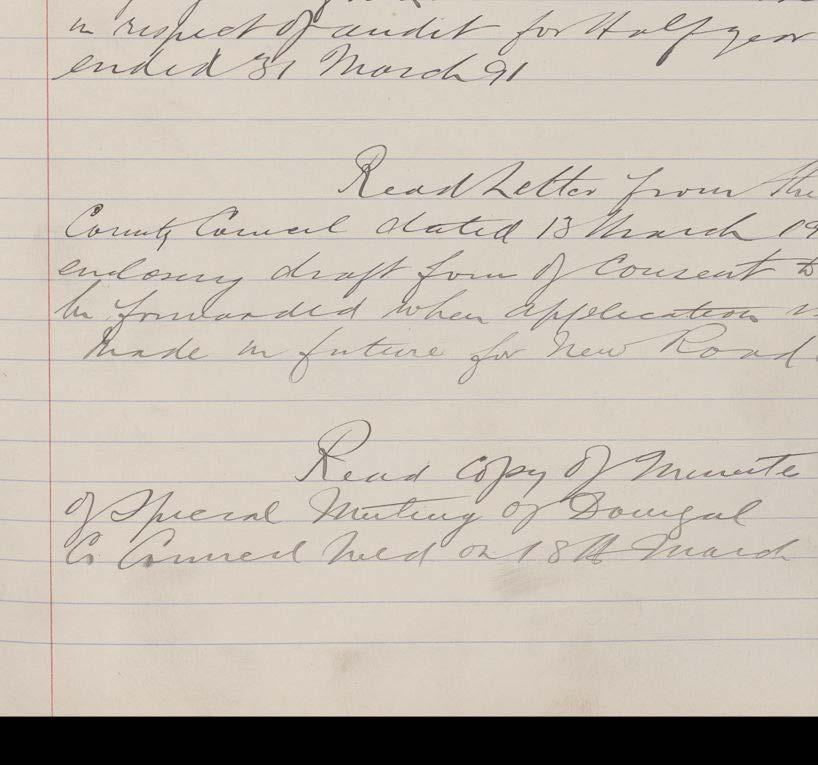 in respect of audit for Half year
ended 31 March 91
Read Letter from the
County Council dated 13 March 19
enclosing draft form of Consent to
be forwarded when application is
made in future for New Road
Read copy of Minute
of Special Meeting of Donegal
Co Council held on 18th March